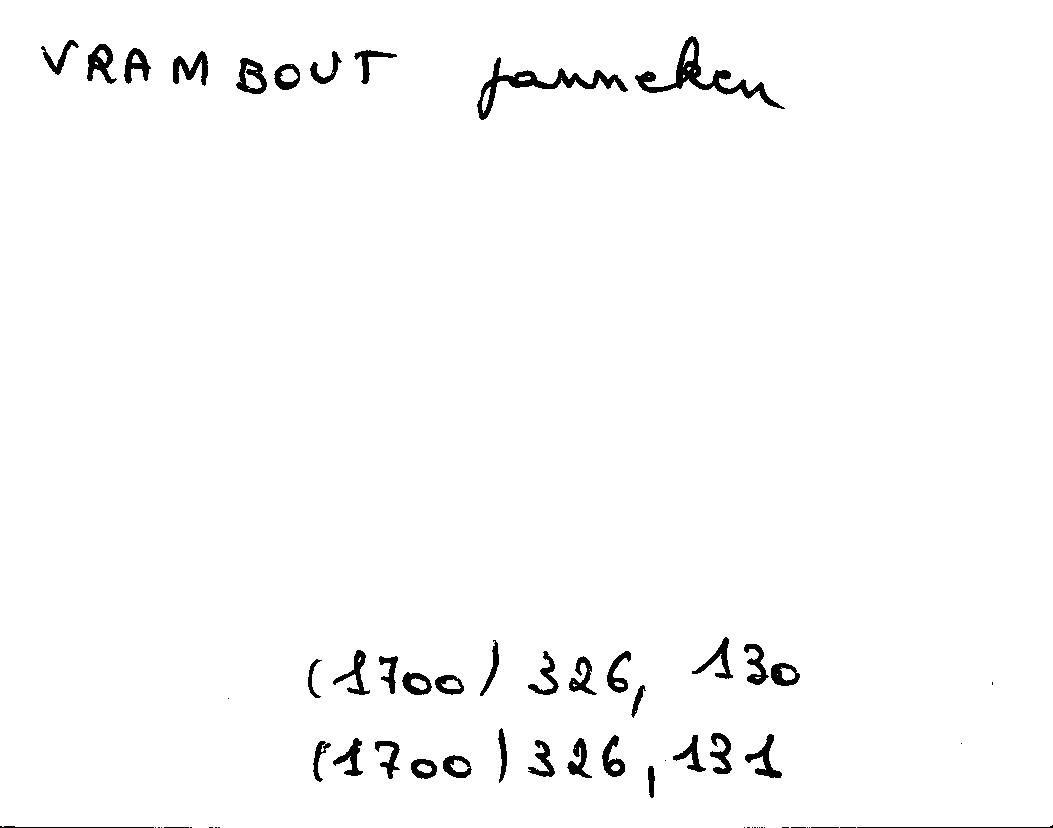 VRAMBOUT Janneken
(1700) 326, 130
(1700) 326, 131